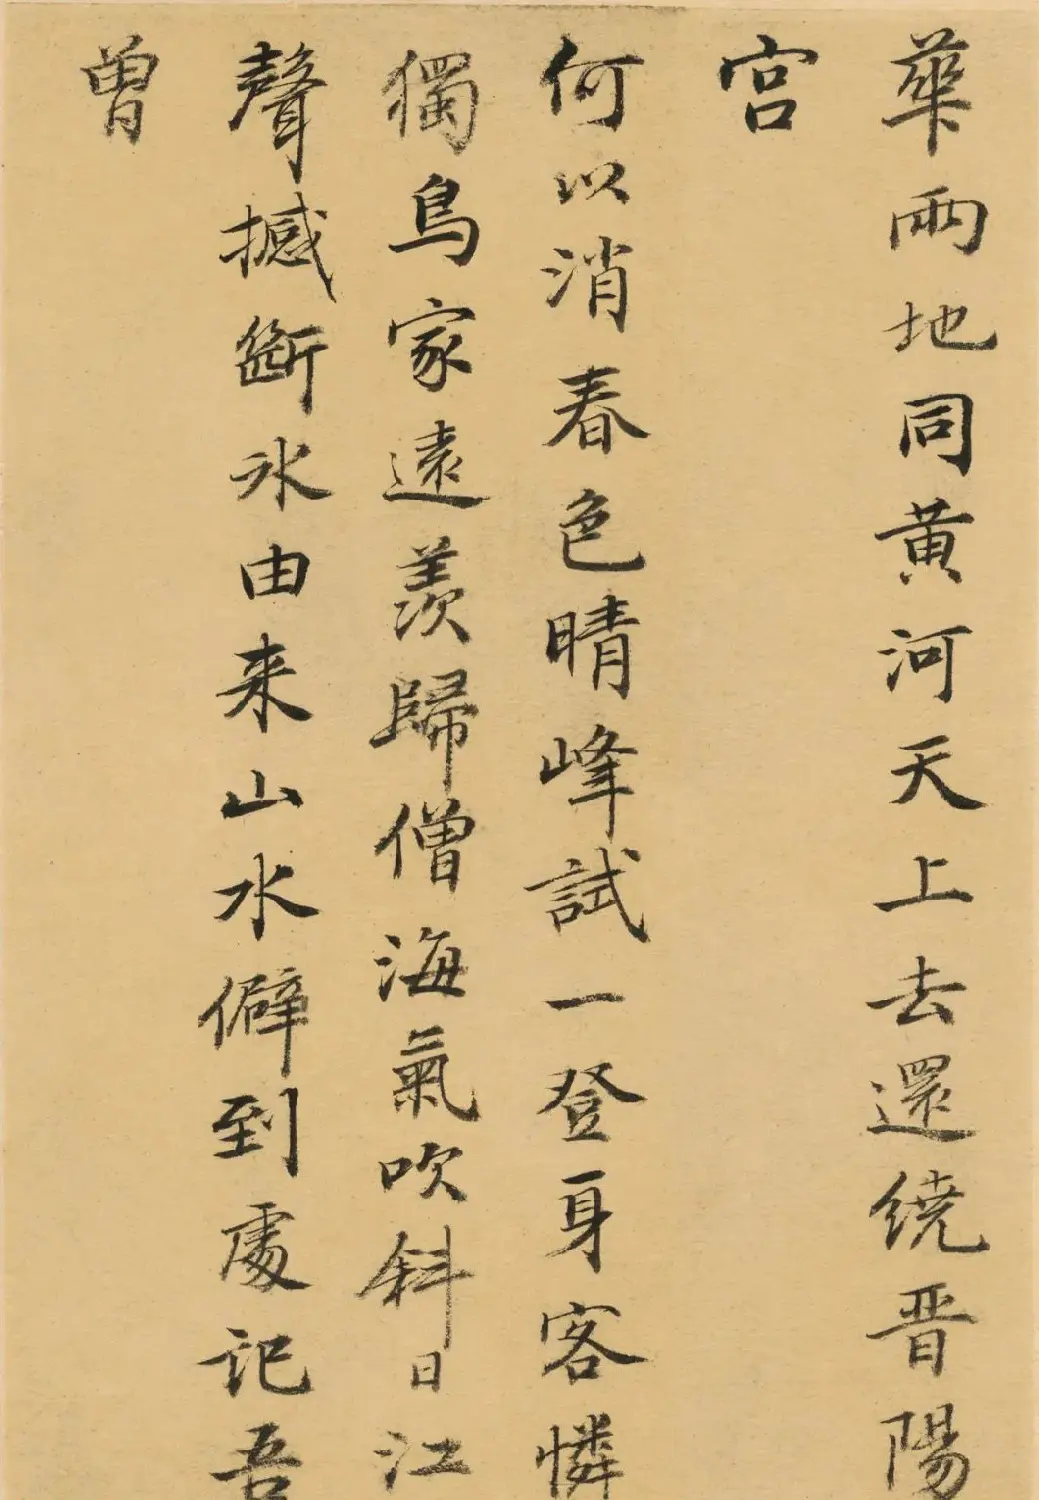 華兩地同黄河天上去還繞晋陽
宫
何以消春色晴峰試一登身客憐
獨鳥家遠羨歸僧海氣吹斜日江
聲撼斷冰由来山水僻到處記吾
曽